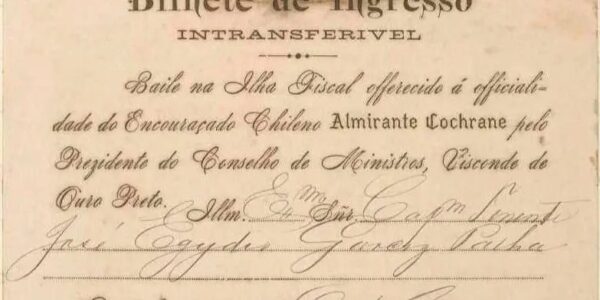 Bilhete de Ingresso
INTRANSFERIVEL
Baile na Ilha Fiscal offerecido á officiali-
dade do Encouraçado Chileno Almirante Cochrane pelo
Prezidente do Conselho de Ministros, Visconde de
Ouro Preto. Illm. Exmo Sñr. Capm Tenente
José Egydio Garcez Palha